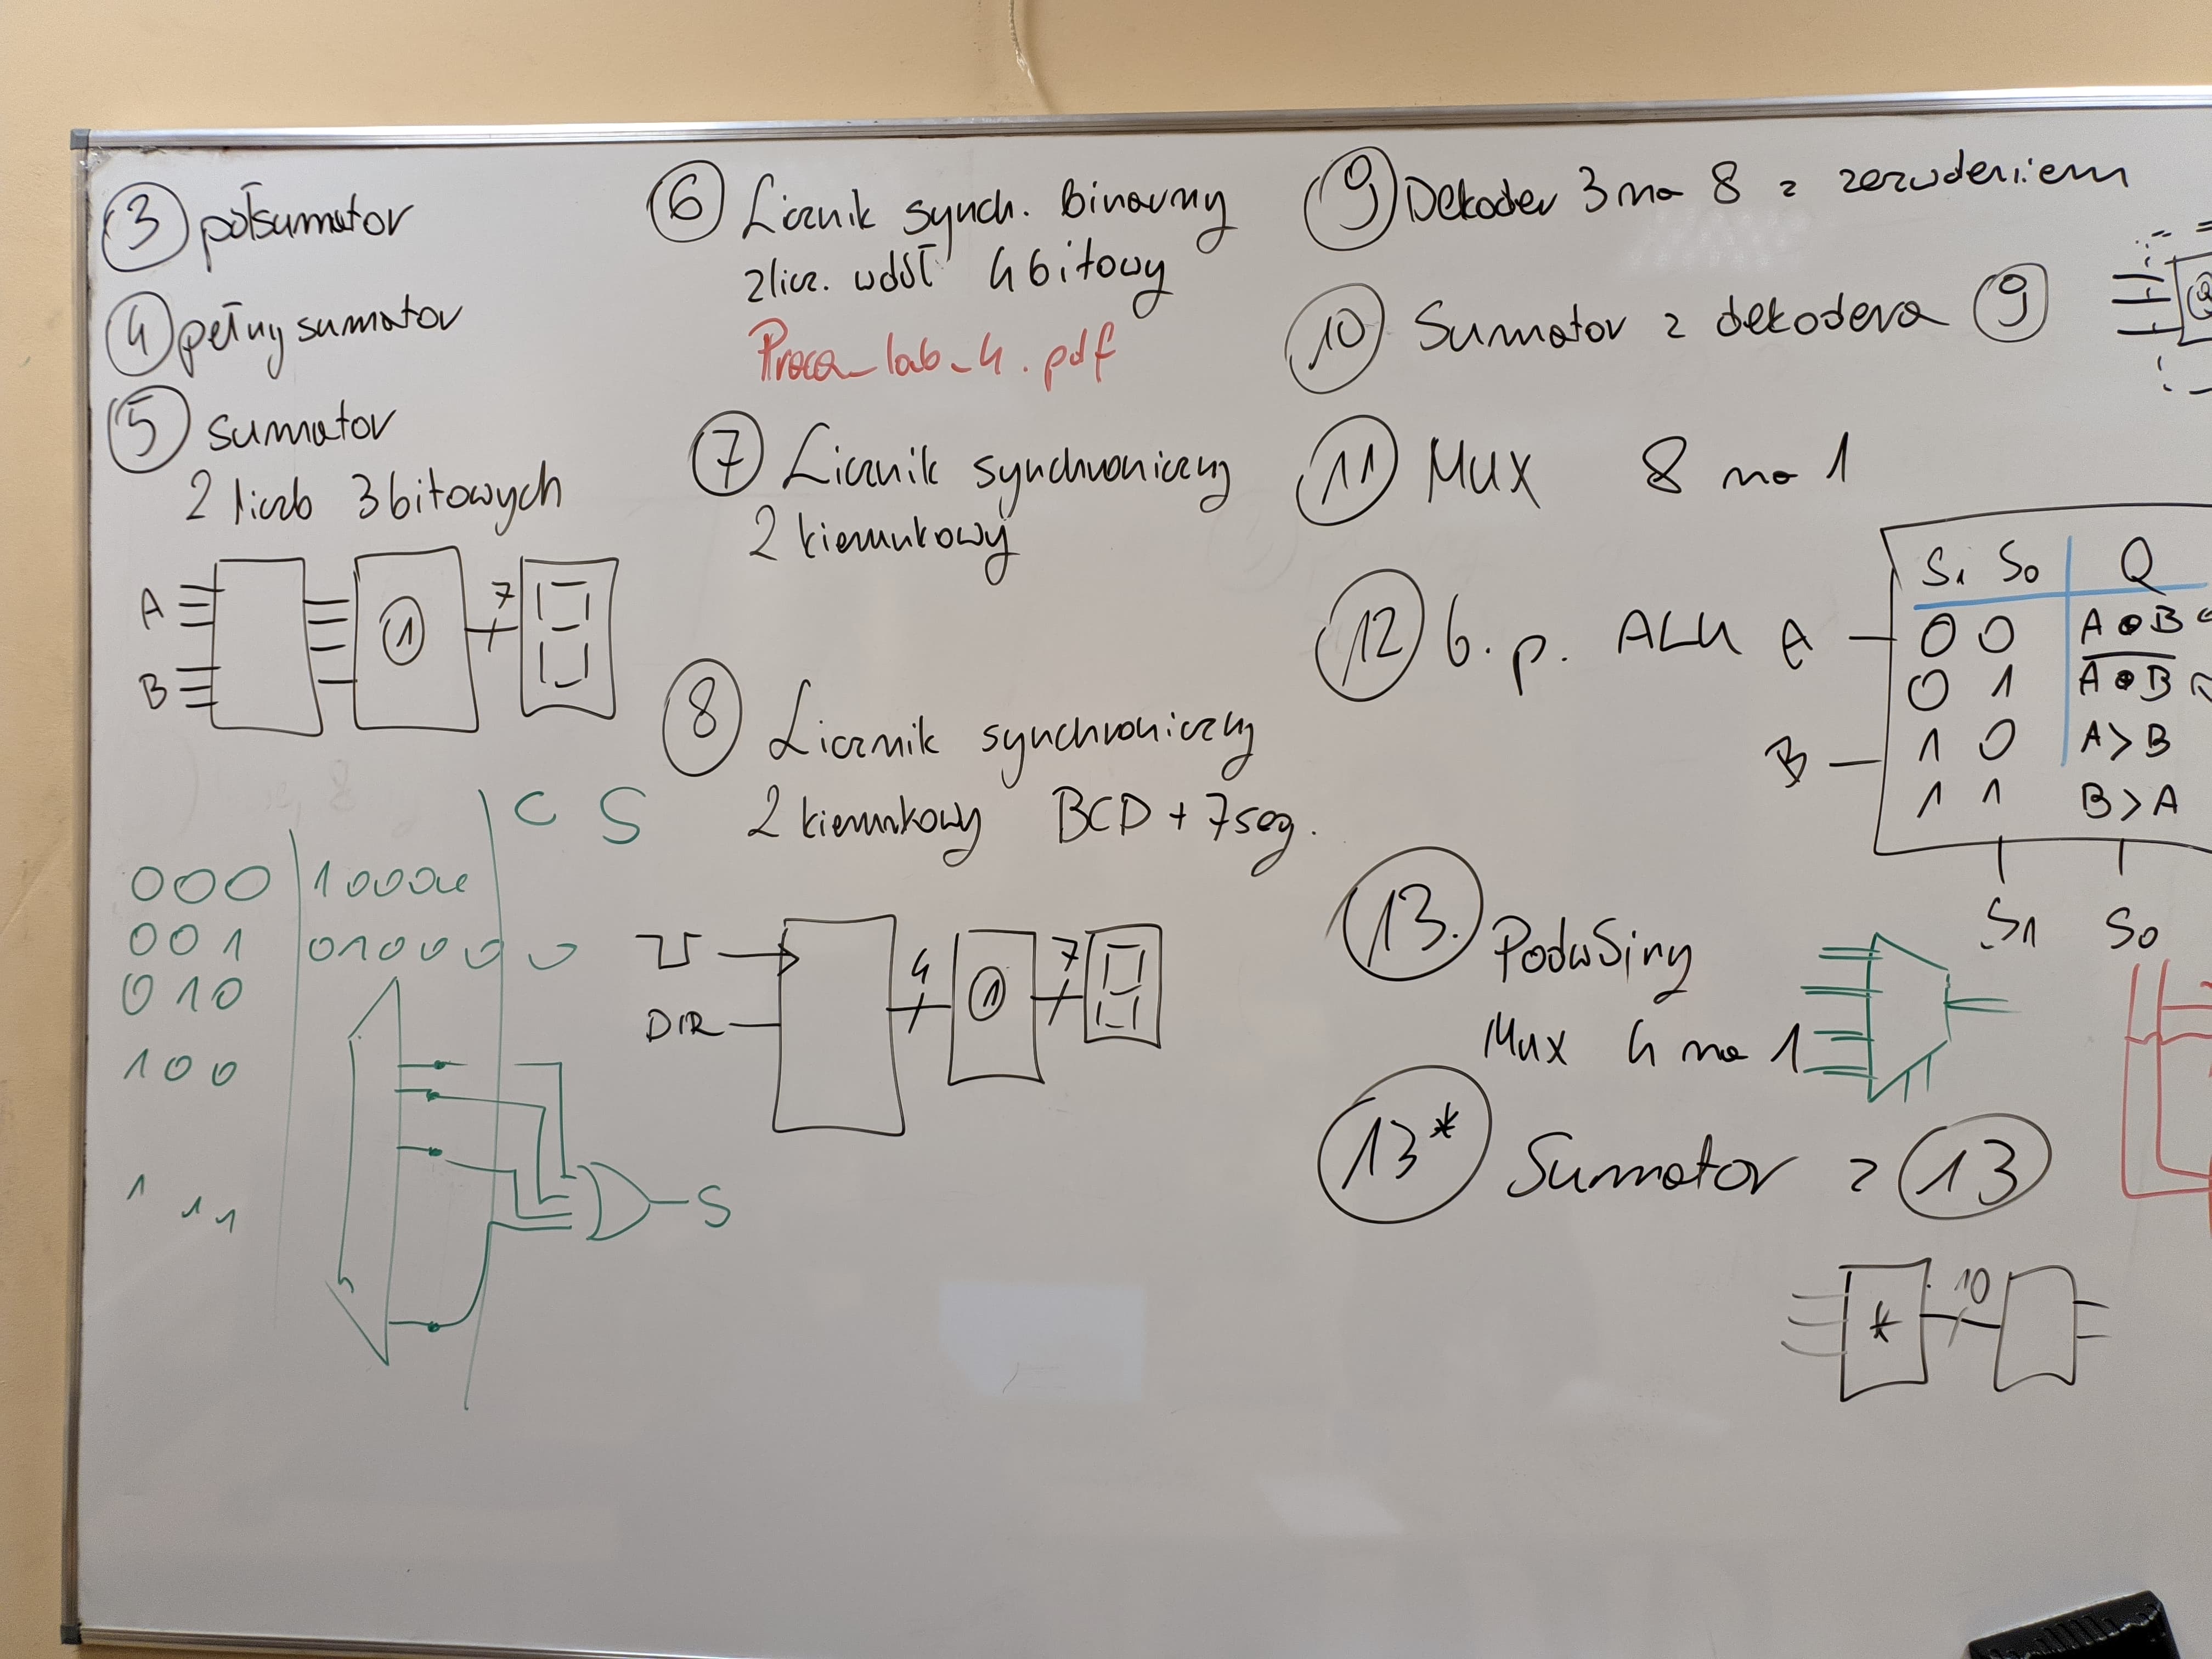 3 półsumator
4 pełny sumator
5 sumator
2 liczb 3bitowych
A
B
1
7
C S
000 1000
001 010000
010
100
1 11
S
6 Licznik synch. binarny
zlicz. wdół 4bitowy
Praca_lab_4.pdf
7 Licznik synchroniczny
2 kierunkowy
8 Licznik synchroniczny
2 kierunkowy BCD + 7seg.
DIR
4
1
7
9 Dekoder 3 na 8 z zezwoleniem
10 Sumator z dekodera 9
11 MUX 8 na 1
12 b. p. ALU
A
B
S1 S0 Q
0 0 A • B
0 1 A • B
1 0 A > B
1 1 B > A
S1 S0
13. Podwójny
Mux 4 na 1
13* Sumator z 13
*
10